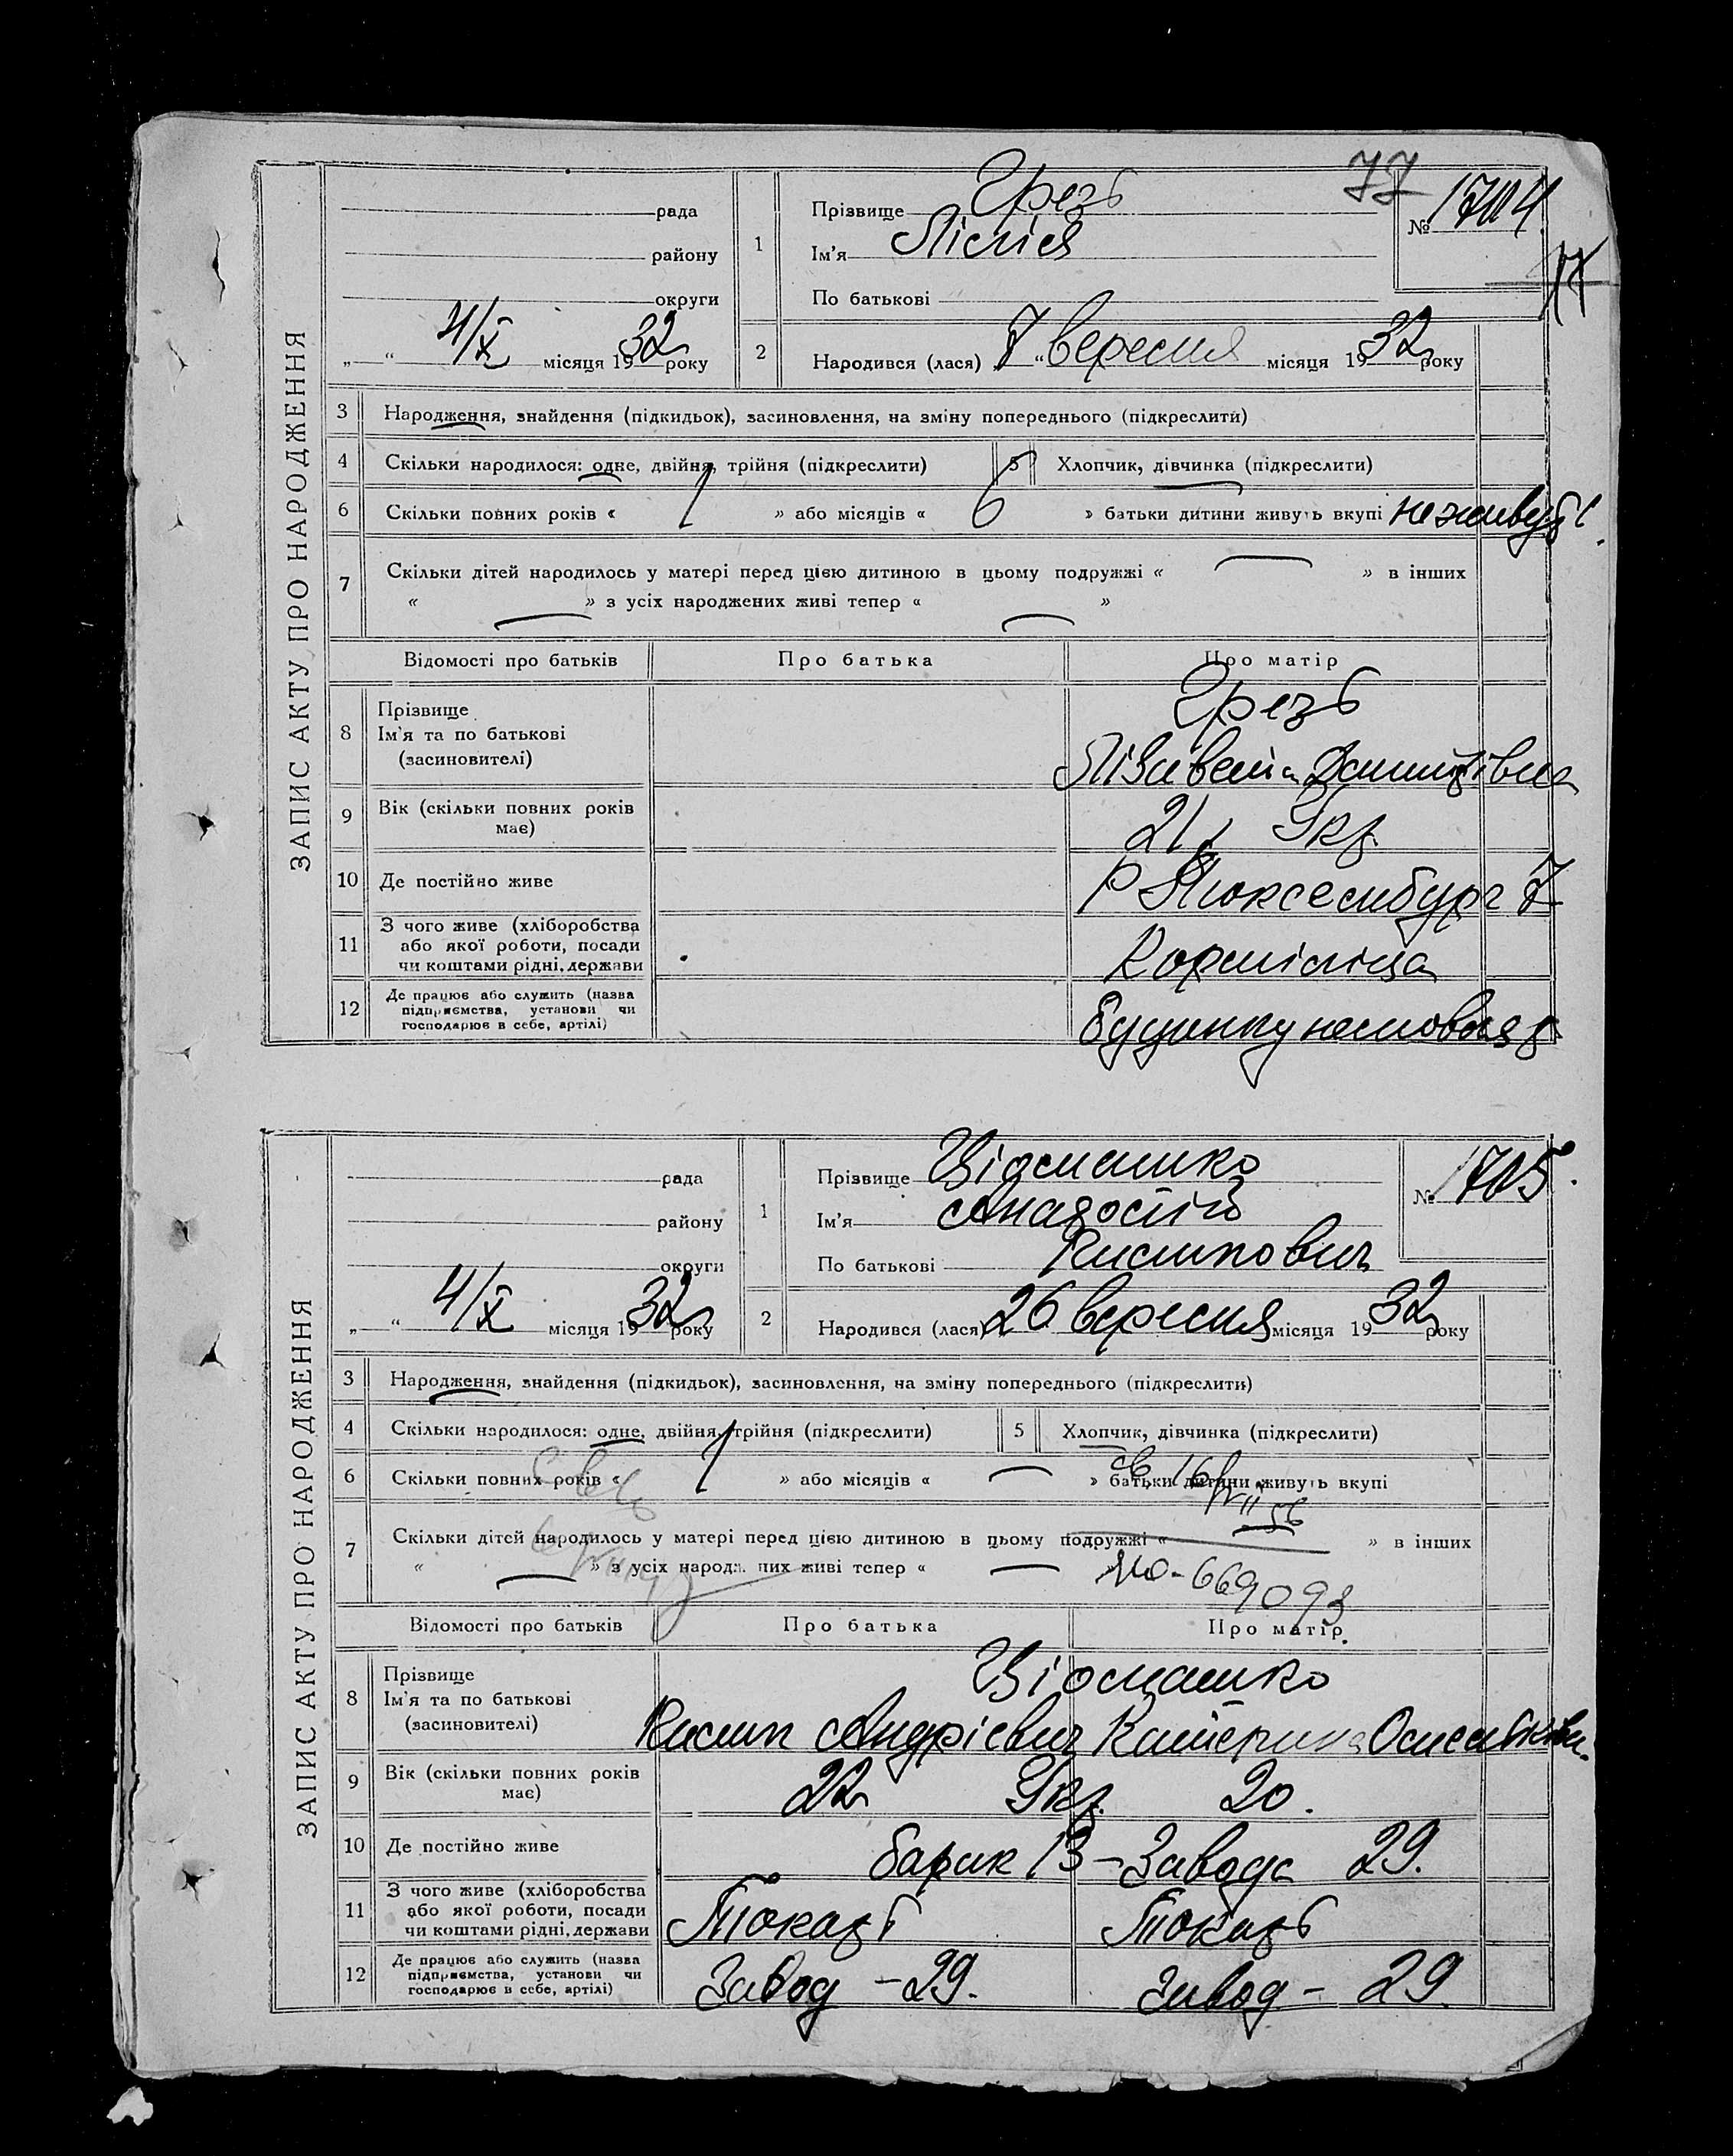 77
ЗАПИС АКТУ ПРО НАРОДЖЕННЯ
рада
району
округи
„ “ 4/X місяця 1932 року
1
Прізвище Грезь
Ім'я Лілія
По батькові
№ 1704
2 Народився (лася) 7 “ вересня місяця 1932 року
3 Народження, знайдення (підкидьок), засиновлення, на зміну попереднього (підкреслити)
4 Скільки народилося: одне, двійня, трійня (підкреслити) 5 Хлопчик, дівчинка (підкреслити)
6 Скільки повних років « 1 » або місяців « 6 » батьки дитини живуть вкупі не живуть
7 Скільки дітей народилось у матері перед цією дитиною в цьому подружжі « — » в інших
« — » з усіх народжених живі тепер « — »
Відомості про батьків Про батька Про матір
8 Прізвище
Ім'я та по батькові
(засиновителі)
Грезь
Лізавета
9 Вік (скільки повних років
має)
21 Укр.
10 Де постійно живе
Р Люксембург 7
11 З чого живе (хліборобства
або якої роботи, посади
чи коштами рідні, держави
Корміліца
12 Де працює або служить (назва
підприємства, установи чи
господарює в себе, артілі)
будинку немовля
ЗАПИС АКТУ ПРО НАРОДЖЕННЯ
рада
району
округи
„ “ 4/X місяця 1932 року
1
Прізвище Віомашко
Ім'я
По батькові Кислпович
№ 1705.
2 Народився (лася) 26 вересня місяця 1932 року
3 Народження, знайдення (підкидьок), засиновлення, на зміну попереднього (підкреслити)
4 Скільки народилося: одне, двійня, трійня (підкреслити) 5 Хлопчик, дівчинка (підкреслити)
6 Скільки повних років « 1 » або місяців « — » батьки дитини живуть вкупі
7 Скільки дітей народилось у матері перед цією дитиною в цьому подружжі « » в інших
« — » з усіх народжених живі тепер « — »
669093
Відомості про батьків Про батька Про матір
8 Прізвище
Ім'я та по батькові
(засиновителі)
Віомашко
Андрієвич Катерина
9 Вік (скільки повних років
має)
22 Укр. 20.
10 Де постійно живе
барак 13 – Завода 29.
11 З чого живе (хліборобства
або якої роботи, посади
чи коштами рідні, держави
Токарь Токарь
12 Де працює або служить (назва
підприємства, установи чи
господарює в себе, артілі)
Завод – 29. Завод – 29.